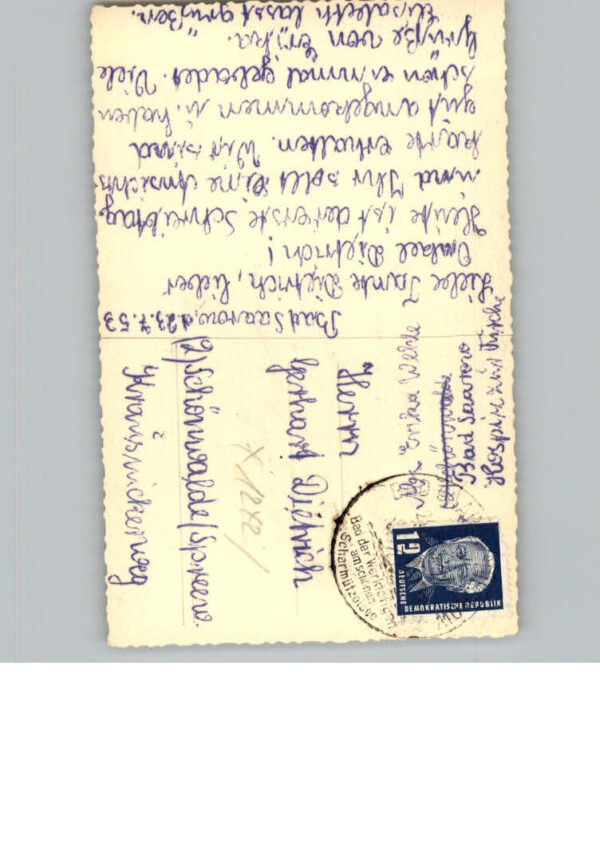 Bad Saarow, d. 23.7.53
Liebe Tante Dietrich, lieber
Onkel Dietrich!
Heute ist der erste Schreibtag
und Ihr sollt eine Ansichts-
karte erhalten. Wir sind
gut angekommen u. haben
schon einmal gebadet. Viele
Grüße von Erika.
Elisabeth lässt grüßen.
Abs. Erika
Bad Saarow
Hospiz zur Furche
Herrn
Gerhart Dietrich
(2) Schönwalde/Spreew.
Krausnickerweg
12
DEUTSCHE
DEMOKRATISCHE REPUBLIK
Bad der Werktätigen
am schönen
Scharmützelsee